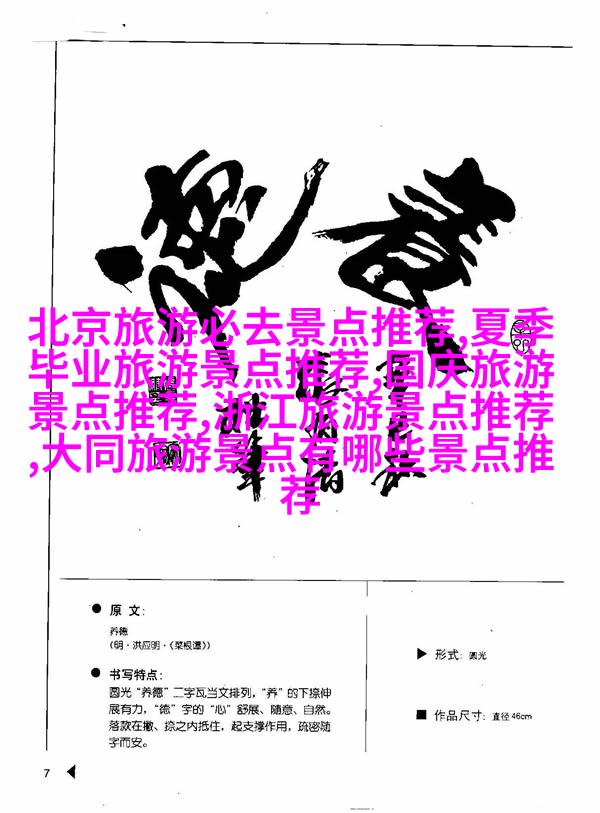 養德
北京旅游必去景点推荐,夏季
毕业旅游景点推荐,国庆旅游
景点推荐,浙江旅游景点推荐
,大同旅游景点有哪些景点推
荐
● 原文：
养德
(明·洪应明·《菜根谭》)
● 书写特点：
圆光“养德”二字瓦当文排列，“养”的下捺伸
展有力，“德”字的“心”舒展、随意、自然。
落款在撇、捺之内抵住，起支撑作用，疏密随
字而安。
▶ 形式：圆光
■ 作品尺寸：直径46cm
7 ◀